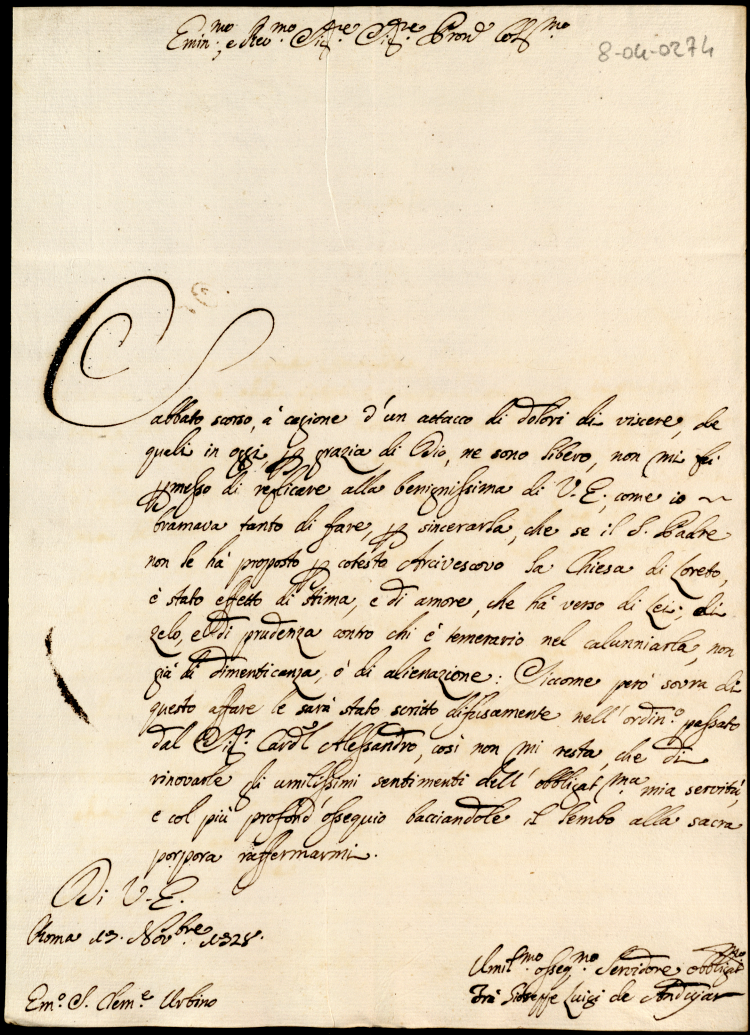 Emin.mo, e Rev.mo Sig.re Sig.re Pron. Coll.mo
8-04-0274
Sabbato scorso, à cagione d'un attacco di dolori di viscere, de
quali in oggi, p grazia di Dio, ne sono libero, non mi fu
pmesso di replicare alla benignissima di V. E., come io ~
bramava tanto di fare, p sincerarla, che se il S. Padre
non le hà proposto p cotesto Arcivescovo la Chiesa di Loreto,
è stato effetto di stima, e di amore, che hà verso di Lei; di
zelo, e di prudenza contro chi è temerario nel calunniarla, non
già di dimenticanza, ò di alienazione: Siccome però sovra di
questo affare le sarà stato scritto difusamente nell'ordin.o passato
dal Sig.r Card.l Alessandro, così non mi resta, che di
rinovarle gli umilissimi sentimenti dell'obbligat.ma mia servitù,
e col più profond'ossequio bacciandole il lembo alla sacra
porpora raffermarmi.
Di V. E.
Roma 13. Nov.bre 1728.
Umil.mo osseq.mo Servidore obbligat.mo
Frà Gioseppe Luigi de Andujar
Em.o S. Clem.e Urbino